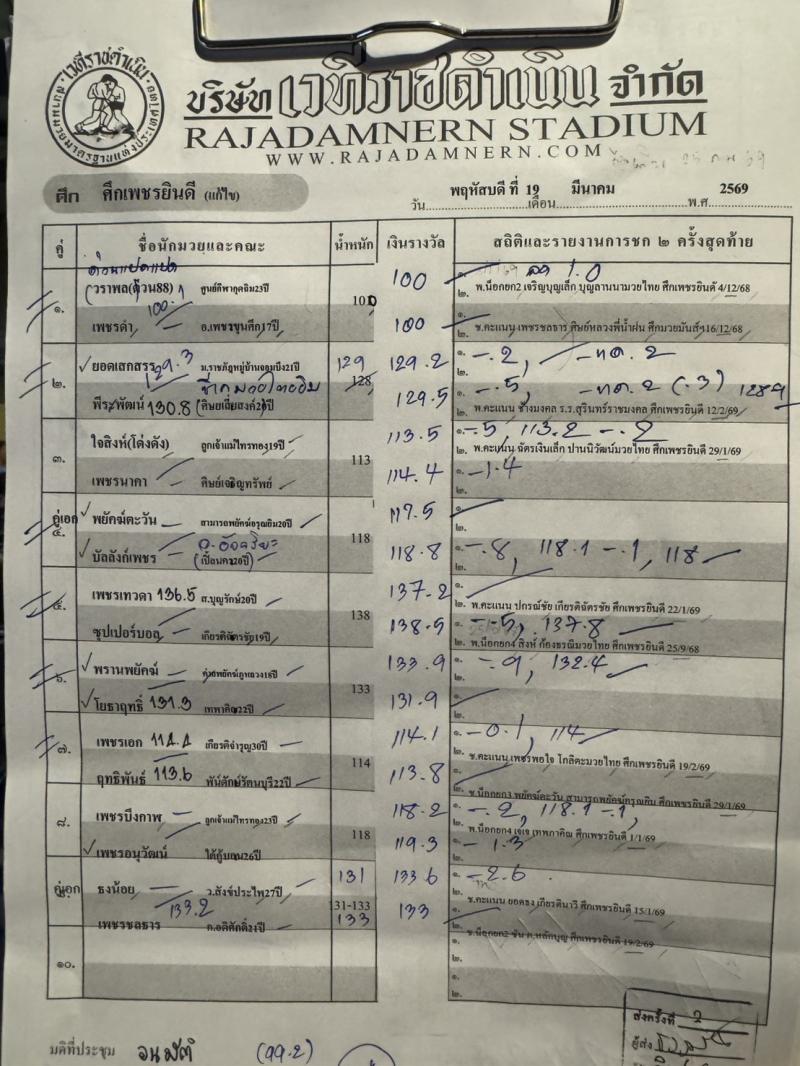 เวทีราชดำเนิน
บริษัท เวทีราชดำเนิน จำกัด
RAJADAMNERN STADIUM
WWW.RAJADAMNERN.COM
ศึก ศึกเพชรยินดี (แก้ไข)
วัน พฤหัสบดี ที่ 19 เดือน มีนาคม พ.ศ. 2569
คู่ ชื่อนักมวยและคณะ น้ำหนัก เงินรางวัล สถิติและรายงานการชก ๒ ครั้งสุดท้าย
100 ๑. 1.0
๑. วราพล 101 ๒. พ.น็อกยก2 เจริญบุญเล็ก บุญลานนามวยไทย ศึกเพชรยินดี 4/12/68
100
เพชรดำ อ.เพชรขุนศึก17ปี 100 ๒. ช.คะแนน เพชรชลธาร ศิษย์หลวงพี่น้ำฝน ศึกมวยมันส์ฯ16/12/68
ยอดเสกสรร ม.ราชภัฏหมู่บ้านจอมบึง21ปี 129 129.2 ๑. -.2
๒. 128
พีระพัฒน์ 130.8 129.5 ๑. -.5 128.9
๒. พ.คะแนน ช้างมงคล ร.ร.สุรินทร์ราชมงคล ศึกเพชรยินดี 12/2/69
ใจสิงห์(โด่งดัง) ลูกเจ้าแม่ไทรทอง19ปี 113.5 ๑. -.5, 113.2 -.2
๓. 113 ๒. พ.คะแนน ฉัตรเงินเล็ก ปานนิวัฒน์มวยไทย ศึกเพชรยินดี 29/1/69
เพชรนาคา ศิษย์เจริญทรัพย์ 114.4 ๑. -1.4
๒.
คู่เอก พยัคฆ์ตะวัน สามารถพยัคฆ์อรุณยิม20ปี 117.5 ๑.
๔. 118 ๒.
บัลลังก์เพชร 118.8 ๑. -.8, 118.1 -.1, 118
๒.
เพชรเทวดา 136.5 ส.บุญรักษ์20ปี 137.2 ๑.
๕. 138 ๒. พ.คะแนน ปกรณ์ชัย เกียรติฉัตรชัย ศึกเพชรยินดี 22/1/69
ซุปเปอร์บอล เกียรติฉัตรชัย19ปี 138.5 ๑. -.5, 137.8
๒. พ.น็อกยก4 สิงห์ ก้องธรณีมวยไทย ศึกเพชรยินดี 25/9/68
พรานพยัคฆ์ 133.9 ๑. -.9, 132.4
๖. 133 ๒.
โยธาฤทธิ์ 131.3 เทพาคิณ22ปี 131.9 ๑.
๒.
เพชรเอก 114.1 เกียรติจำรูญ30ปี 114.1 ๑. -0.1, 114
๗. 114 ๒. ช.คะแนน เพชรพอใจ โกลิตะมวยไทย ศึกเพชรยินดี 19/2/69
ฤทธิพันธ์ 113.6 พันดักษ์รัตนบุรี22ปี 113.8 ๑.
๒. ช.น็อกยก3 พยัคฆ์ตะวัน สามารถพยัคฆ์อรุณยิม ศึกเพชรยินดี 29/1/69
เพชรบึงกาฬ ลูกเจ้าแม่ไทรทอง23ปี 118.2 ๑. -.2, 118.1 -.1,
๘. 118 ๒. พ.น็อกยก4 เจเจ เทพภาคิณ ศึกเพชรยินดี 1/1/69
เพชรอนุวัฒน์ ใต้กู้บอน26ปี 119.3 ๑. -1.3
๒.
คู่เอก ธงน้อย ว.สังข์ประไพ27ปี 131 133.6 ๑. -2.6
133.2 131-133 ๒. ช.คะแนน ยอดธง เกียรตินาวี ศึกเพชรยินดี 15/1/69
เพชรชลธาร ก.อดิศักดิ์21ปี 133 133 ๑.
๒. ช.น็อกยก2 ศึกเพชรยินดี 19/2/69
๑๐. ๑.
๒.
๑.
๒.
มติที่ประชุม อนุมัติ (99.2)
ส่งครั้งที่ 2
ผู้ส่ง